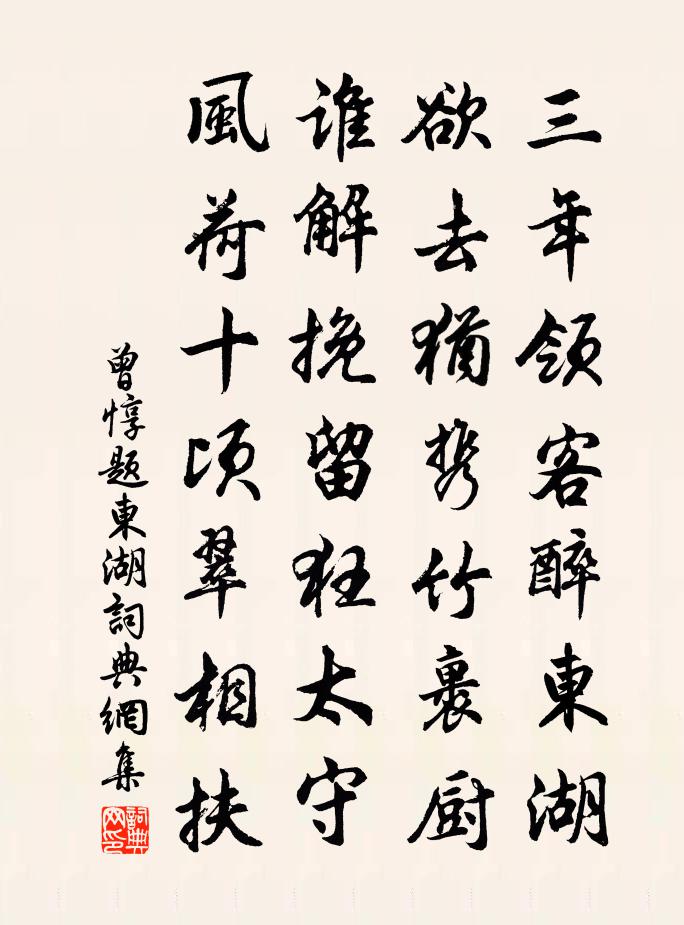 三年領客醉東湖
欲去猶携竹裹厨
誰解挽留狂太守
風荷十頃翠相扶
曾惇題東湖詞典網集
詞典網印